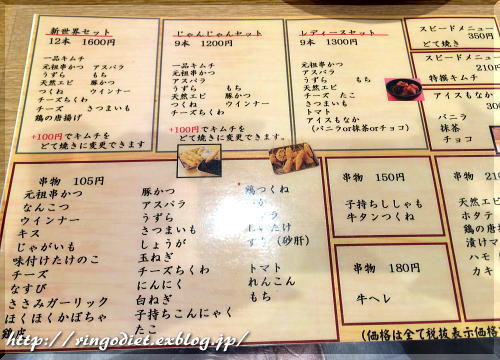 新世界セット
12本 1600円
一品キムチ
元祖串かつ アスパラ
うずら もち
天然エビ 豚かつ
つくね ウインナー
チーズちくわ
チーズ さつまいも
鶏の唐揚げ
+100円でキムチを
どて焼に変更できます
じゃんじゃんセット
9本 1200円
一品キムチ
元祖串かつ
アスパラ
うずら もち
天然エビ 豚かつ
つくね ウインナー
チーズちくわ
+100円でキムチを
どて焼に変更できます。
レディースセット
9本 1300円
元祖串かつ
アスパラ
うずら もち
天然エビ
チーズ たこ
さつまいも
トマト
アイスもなか
(バニラor抹茶orチョコ)
スピードメニュー
350円
どて焼き
スピードメニュー
210円
特撰キムチ
アイスもなか
バニラ
抹茶
チョコ
串物 105円
元祖串かつ
なんこつ
ウインナー
キス
じゃがいも
味付けたけのこ
チーズ
なすび
ささみガーリック
ほくほくかぼちゃ
鶏皮
豚かつ
アスパラ
うずら
さつまいも
しょうが
玉ねぎ
チーズちくわ
にんにく
白ねぎ
子持ちこんにゃく
たこ
鶏つくね
(砂肝)
トマト
れんこん
もち
串物 150円
子持ちししゃも
牛タンつくね
串物 180円
牛ヘレ
串物 210
天然エビ
ホタテ
鶏の唐揚
漬けマ
ハモ
カキ
(価格は全て税抜表示価格
http://ringodiet.exblog.jp/